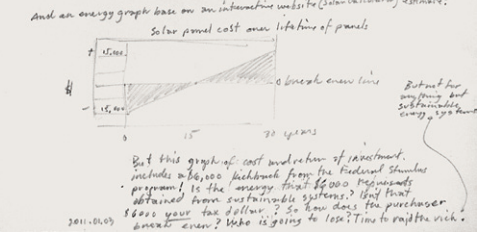 And an energy graph base on an interactive website (Solar                ) estimate.
Solar panel cost over lifetime of panels
+ 15,000
$
0 break even line
- 15,000
0 15 30 years
But not for
anything but
sustainable
energy systems
But this graph of cost and return of investment.
includes a $6,000 kickback from the Federal Stimulus
program! Is the energy that $6,000 represents
obtained from sustainable systems? Isn't that
$6000 your tax dollar? So how does the purchaser
break even? Who is going to lose? Time to raid the rich!
2011.01.03